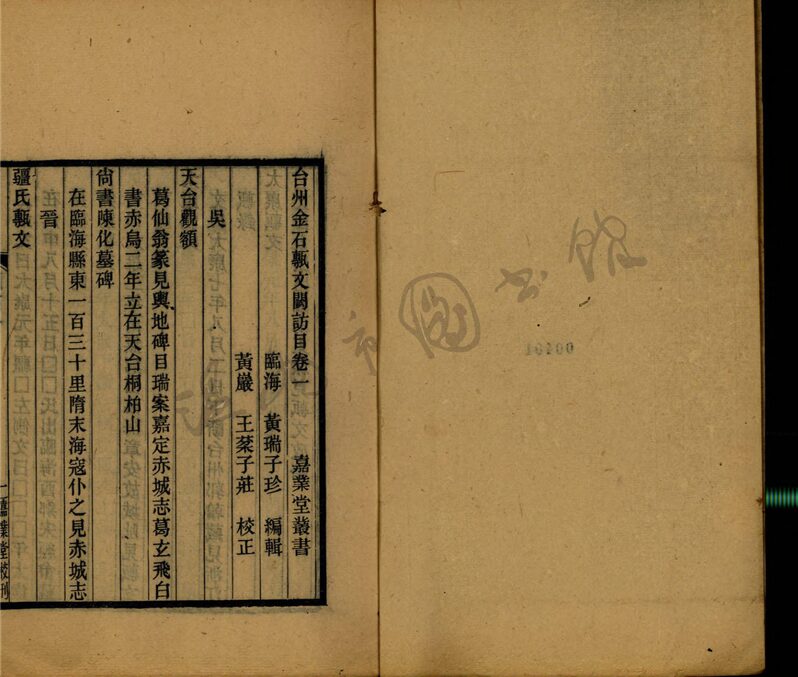 台州金石甎文闕訪目卷一 嘉業堂叢書
臨海 黃瑞子珍 編輯
黃巖 王棻子莊 校正
吳
天台觀額
葛仙翁篆見輿地碑目瑞案嘉定赤城志葛玄飛白
書赤烏二年立在天台桐柏山
尙書陳化墓碑
在臨海縣東一百三十里隋末海寇仆之見赤城志
晉
疆氏甎文
一 嘉業堂校刊
市圖書館
00401